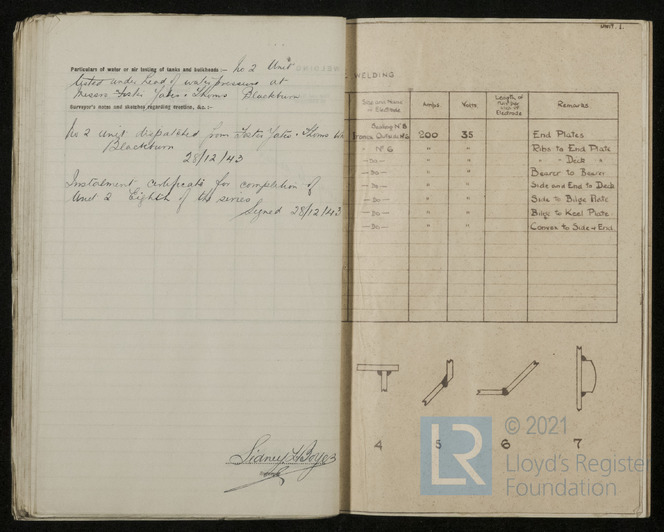 Particulars of water or air testing of tanks and bulkheads :— No 2 Unit
tested under head of water pressure at
Messrs Foster Yates & Thoms Blackburn
Surveyor's notes and sketches regarding vessel &c. :—
No 2 unit dispatched from Foster Yates & Thoms
Blackburn
28/12/43
Instalment certificate for completion of
Unit 2 Eighth of the series
Signed 28/12/43
Sidney H Boyes
UNIT. 1.
WELDING
Size and Name of Electrode Amps. Volts. Length of run per unit of Electrode Remarks
Nº 8
200 35 End Plates
" Nº 6 " " Ribs to End Plate
—Do— " " " " Deck "
—Do— " " Bearer to Bearer
—Do— " " Side and End to Deck
—Do— " " Side to Bilge Plate
—Do— " " Bilge to Keel Plate
—Do— " " Convex to Side & End.
4 5 6 7
LR © 2021
Lloyd's Register
Foundation